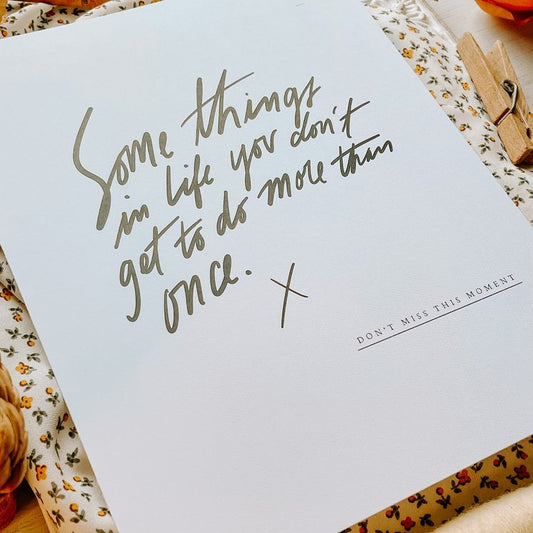 Some things
in life you don't
get to do more than
once. X
DON'T MISS THIS MOMENT